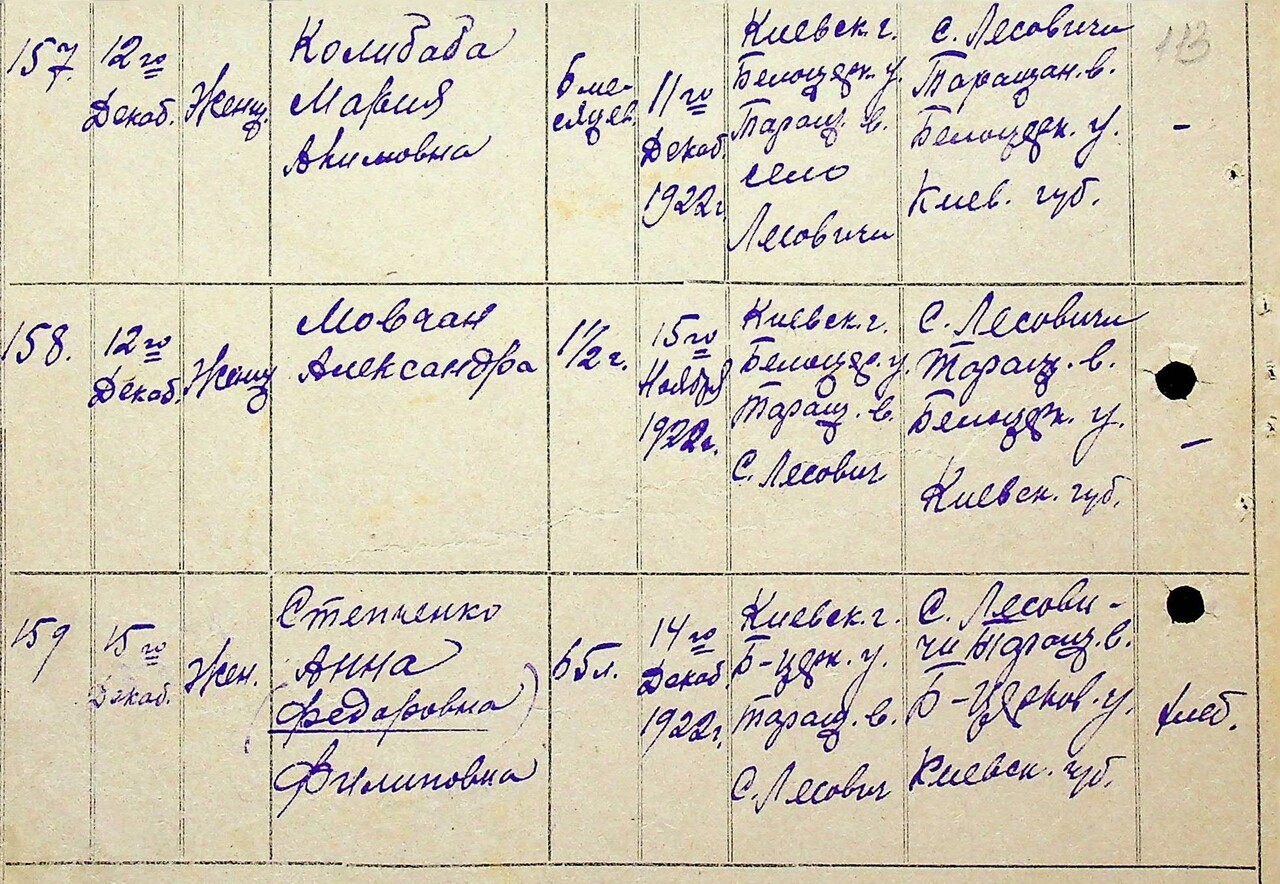 157.
12го
Декаб.
Женщ.
Колибаба
Мария
Акимовна
6 ме-
сяцев.
11го
Декаб.
1922г.
Киевск. г.
Белоцерк. у.
Таращ. в.
село
Лесовичи
с. Лесовичи
Таращан. в.
Белоцерк. у.
Киев. губ.
113
-
158.
12го
Декаб.
Женщ
Мовчан
Александра
1 1/2 г.
15го
Ноября
1922г.
Киевск. г.
Белоцер. у.
Таращ. в.
С. Лесович
С. Лесовичи
Таращ. в.
Белоцерк. у.
Киевск. губ.
-
159
15го
Декаб.
Жен.
Степченко
Анна
(Федоровна)
Филиповна
65л.
14го
Декаб.
1922г.
Киевск. г.
Б-церк. у.
Таращ. в.
С. Лесович
С. Лесови-
чи Таращ. в.
Б-Церков. у.
Киевск. губ.
хлеб.